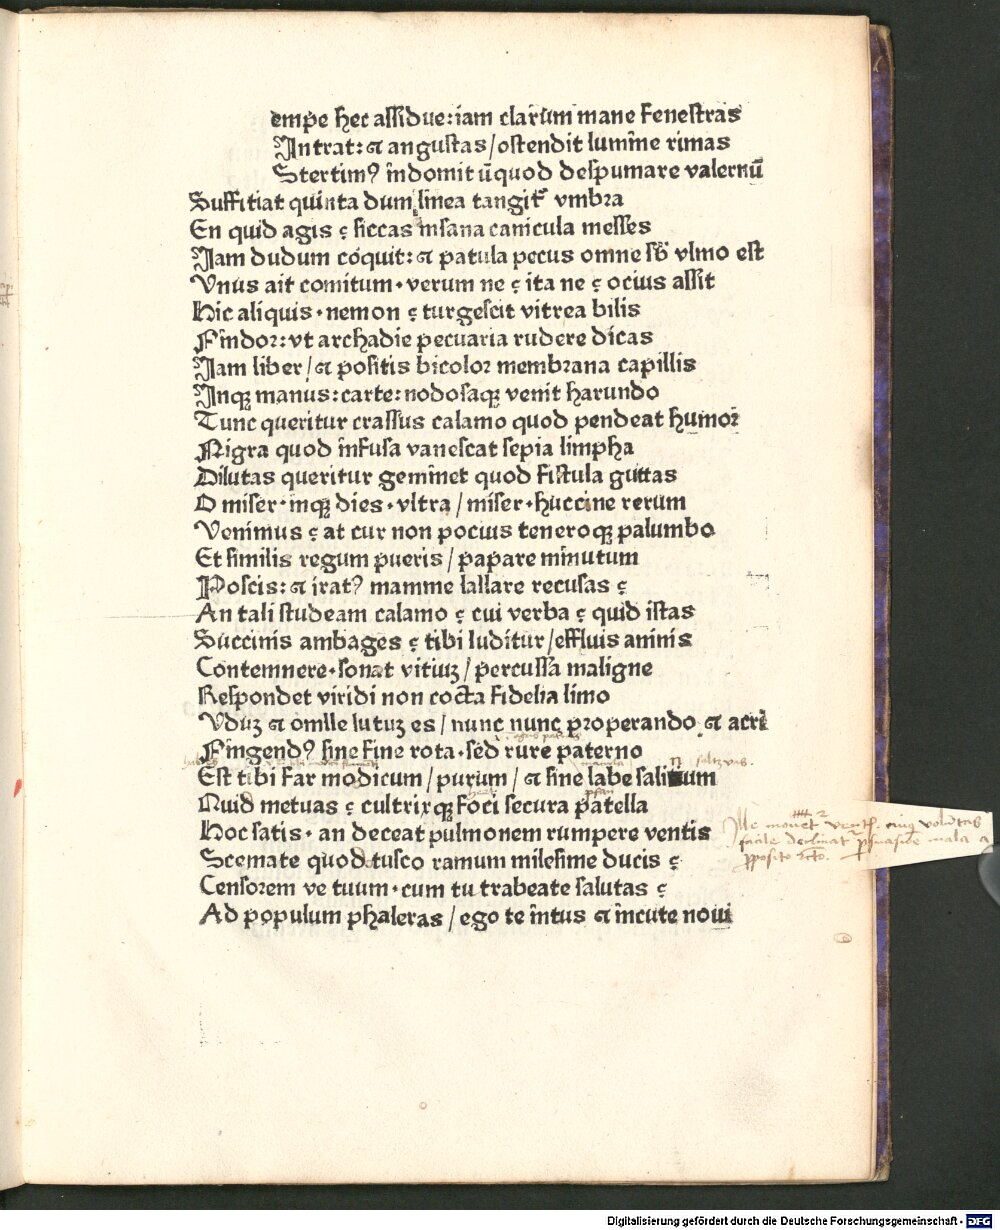 empe hec assidue: iam clarum mane fenestras
Intrat: ⁊ angustas / ostendit lumine rimas
Stertimꝰ indomit ūquod despumare valernū
Suffitiat quinta dum linea tangit᷑ vmbra
En quid agis ? siccas insana canicula messes
Iam dudum coquit: ⁊ patula pecus omne sb̄ vlmo est
Vnus ait comitum · verum ne ? ita ne ? ocius assit
Hic aliquis · nemon ? turgescit vitrea bilis
Findor: vt archadie pecuaria rudere dicas
Iam liber / ⁊ positis bicolor membrana capillis
Inqꝫ manus: carte: nodosaqꝫ venit harundo
Tunc queritur crassus calamo quod pendeat humor
Nigra quod infusa vanescat sepia limpha
Dilutas queritur geminet quod fistula guttas
O miser · inqꝫ dies · vltra / miser · huccine rerum
Venimus ? at cur non pocius teneroqꝫ palumbo
Et similis regum pueris / papare minutum
Poscis: ⁊ iratꝰ mamme lallare recusas ?
An tali studeam calamo ? cui verba ? quid istas
Succinis ambages ? tibi luditur / effluis aninis
Contemnere · sonat vitiuꝫ / percussa maligne
Respondet viridi non cocta fidelia limo
Vduꝫ ⁊ omlle lutuꝫ es / nunc nunc properando ⁊ acri
Fingendꝰ sine fine rota · sed rure paterno
Est tibi far modicum / purum / ⁊ sine labe salinum
Quid metuas ? cultrixqꝫ foci secura patella
Hoc satis · an deceat pulmonem rumpere ventis
Scemate quod tusco ramum milesime ducis ?
Censorem ve tuum · cum tu trabeate salutas ?
Ad populum phaleras / ego te intus ⁊ incute noui
Digitalisierung gefördert durch die Deutsche Forschungsgemeinschaft - DFG